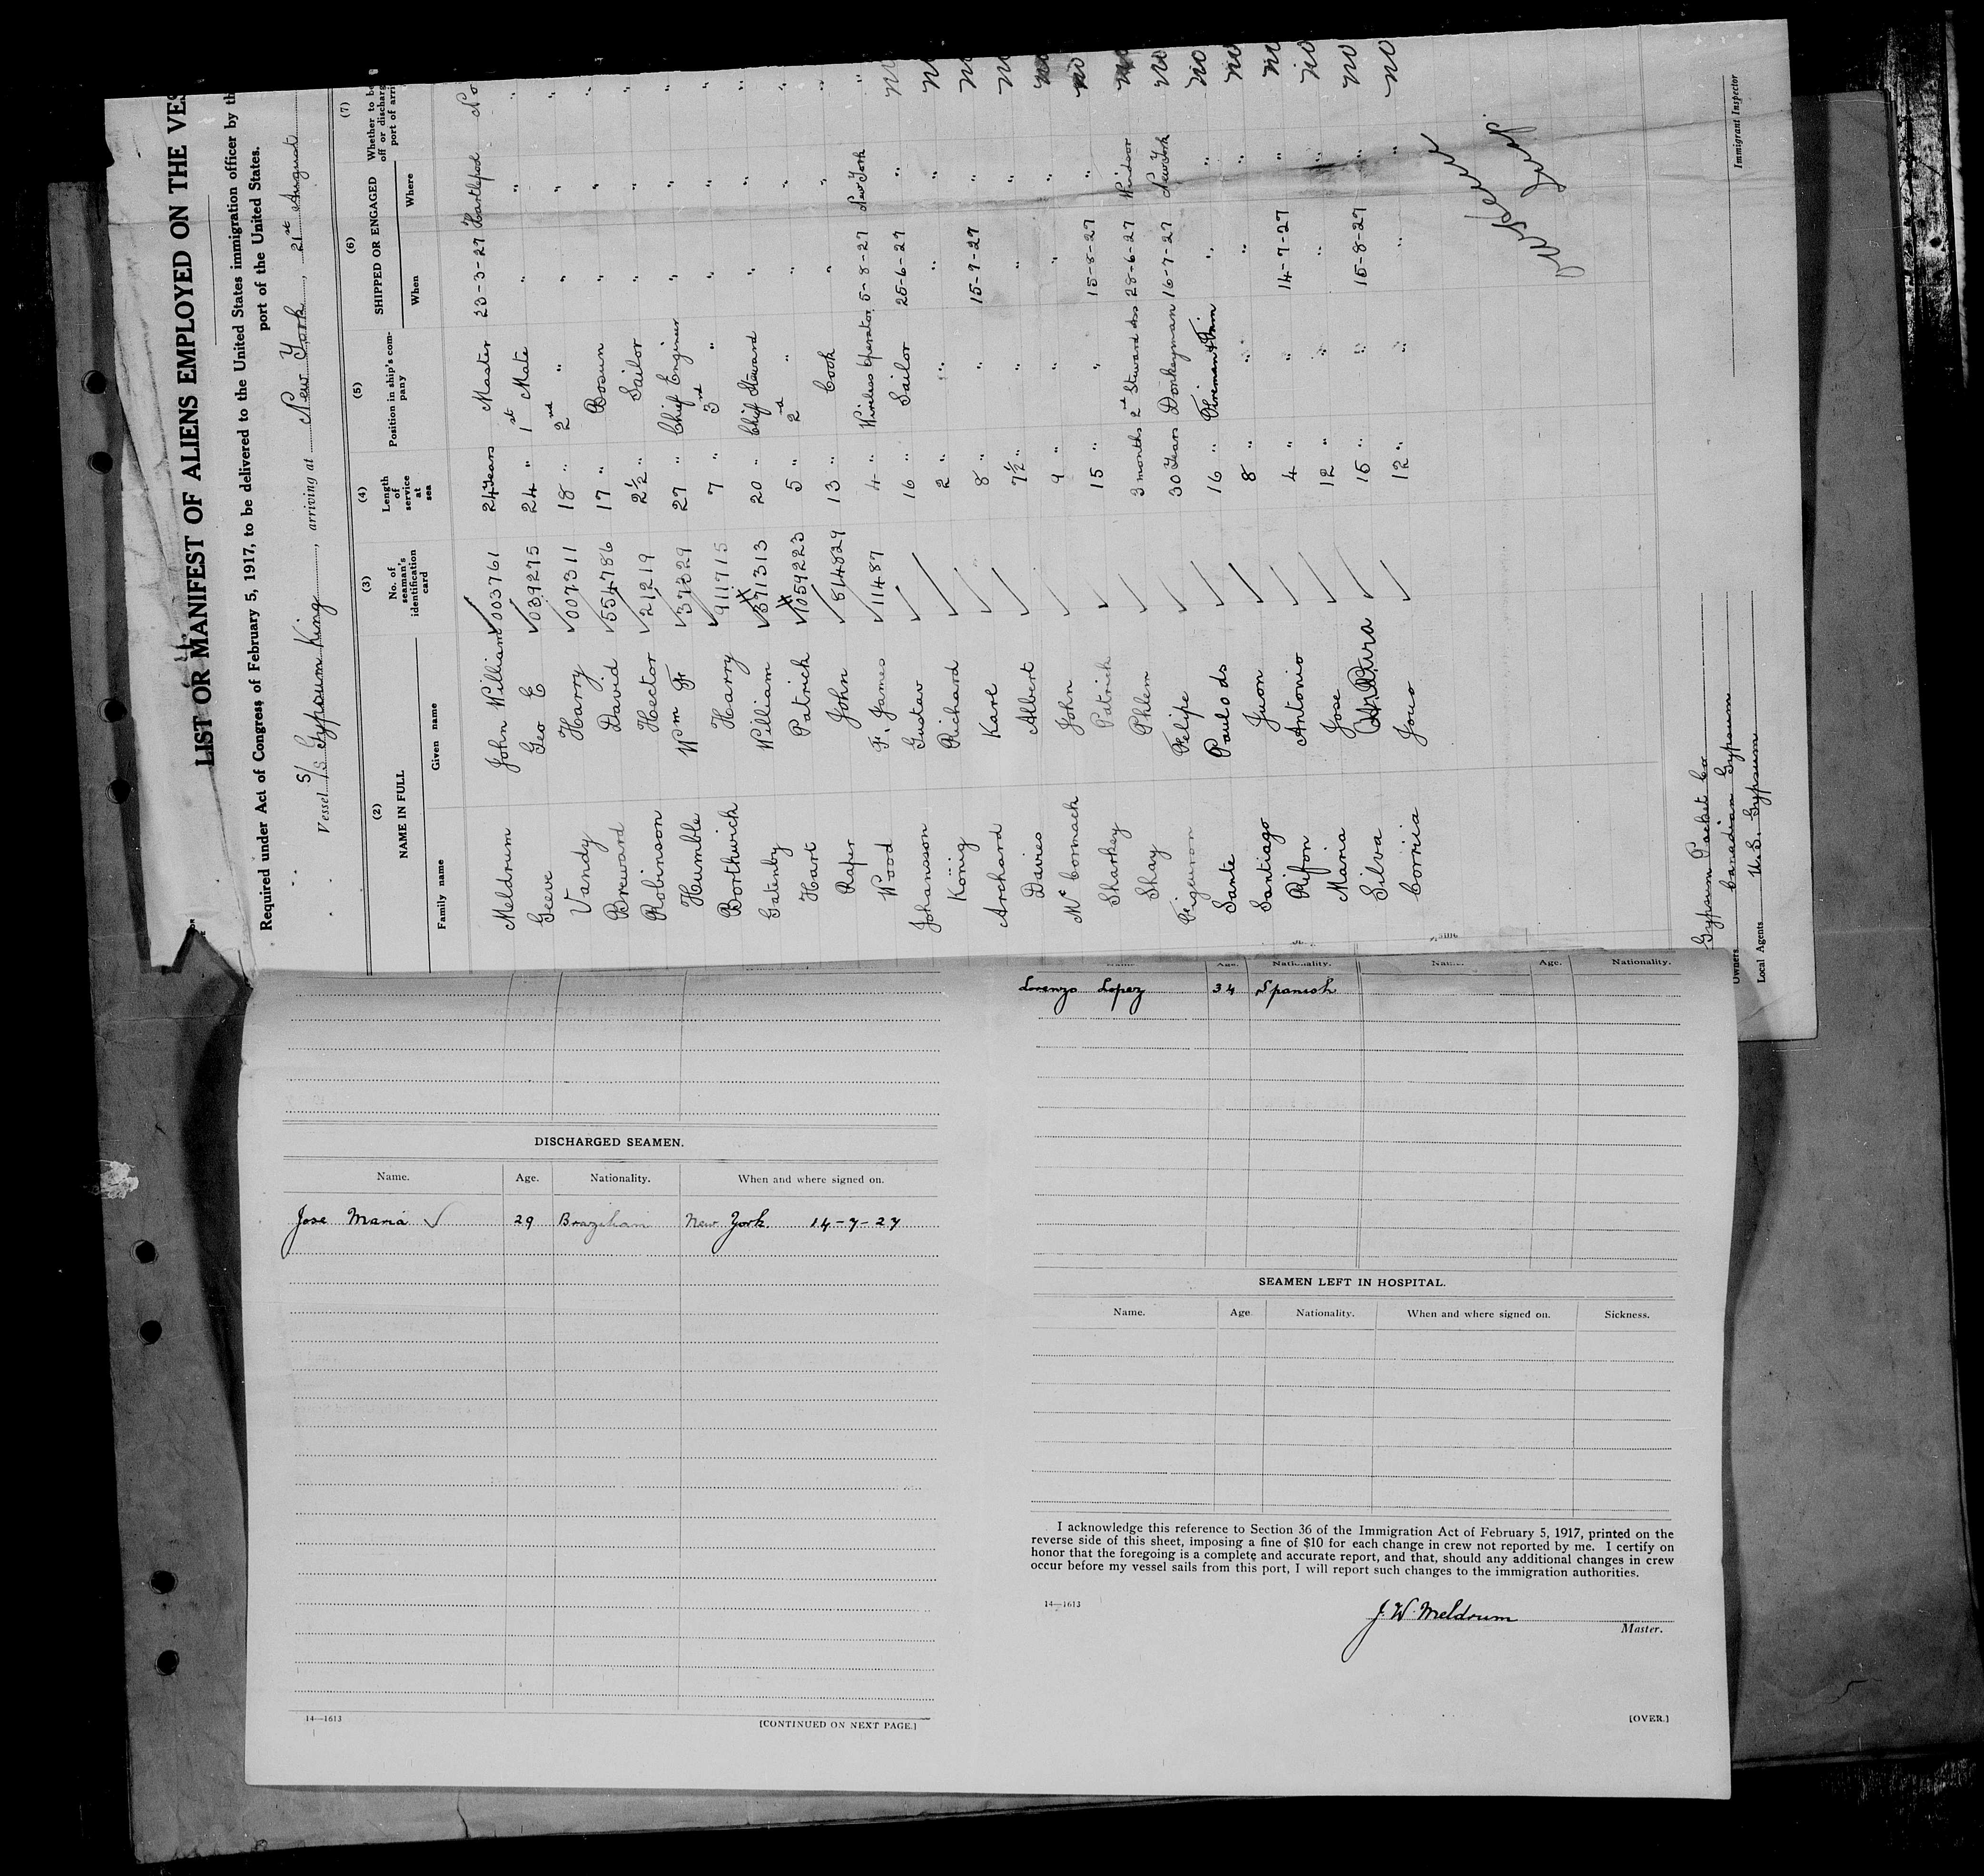 LIST OR MANIFEST OF ALIENS EMPLOYED ON THE VES
Required under Act of Congress of February 5, 1917, to be delivered to the United States immigration officer by th
port of the United States.
Vessel S/S Gypsum King, arriving at New York, 21st August
(2) (3) (4) (5) (6) (7)
NAME IN FULL No. of seaman's identification card Length of service at sea Position in ship's company SHIPPED OR ENGAGED Whether to be off or discharg port of arri
Family name Given name When Where
Meldrum John William 003761 24 Years Master 23-3-27 Hartlepool No
Geeve Geo E 039275 24 " 1st Mate " " "
Vandy Harry 007311 18 " 2nd " " " "
Breward David 554786 17 " Bosun " " "
Robinson Hector 21219 2½ " Sailor " " "
Humble Wm Fr 37329 27 " Chief Engineer " " "
Borthwick Harry 911715 7 " 3rd " " " "
Gatenby William 371313 20 " Chief Steward " " "
Hart Patrick 1059223 5 " 2nd " " " "
Rafer John 514829 13 " Cook " " "
Wood F. James 11487 4 " Wireless Operator 5-8-27 New York "
Johansson Gustav 16 " Sailor 25-6-27 " no
König Richard 2 " " " " no
Archard Karl 8 " " 15-7-27 " no
Davies Albert 7½ " " " " no
Mc Cormack John 9 " " " " no
Sharkey Patrick 15 " " 15-8-27 " no
Shay Phlem 3 months 2nd Steward ass 28-6-27 Windsor no
Figueron Felipe 30 Years Donkeyman 16-7-27 New York no
Sante Paulo ds 16 " Fireman & Trim " " no
Santiago Juon 8 " " " " no
Rifon Antonio 4 " " 14-7-27 " no
Maria Jose 12 " " " " no
Silva 15 " " 15-8-27 " no
Corria Joao 12 " " " " no
Owners Gypsum Packet Co
Canadian Gypsum
Local Agents U.S. Gypsum
Immigrant Inspector
DISCHARGED SEAMEN.
Name. Age. Nationality. When and where signed on.
Jose Maria 29 Brazilian New York 14-7-27
14—1613
[CONTINUED ON NEXT PAGE.]
Name. Age. Nationality. Name. Age. Nationality.
Lorenzo Lopez 34 Spanish
SEAMEN LEFT IN HOSPITAL.
Name. Age Nationality. When and where signed on. Sickness.
I acknowledge this reference to Section 36 of the Immigration Act of February 5, 1917, printed on the
reverse side of this sheet, imposing a fine of $10 for each change in crew not reported by me. I certify on
honor that the foregoing is a complete and accurate report, and that, should any additional changes in crew
occur before my vessel sails from this port, I will report such changes to the immigration authorities.
14—1613
J. W. Meldrum
Master.
[OVER.]